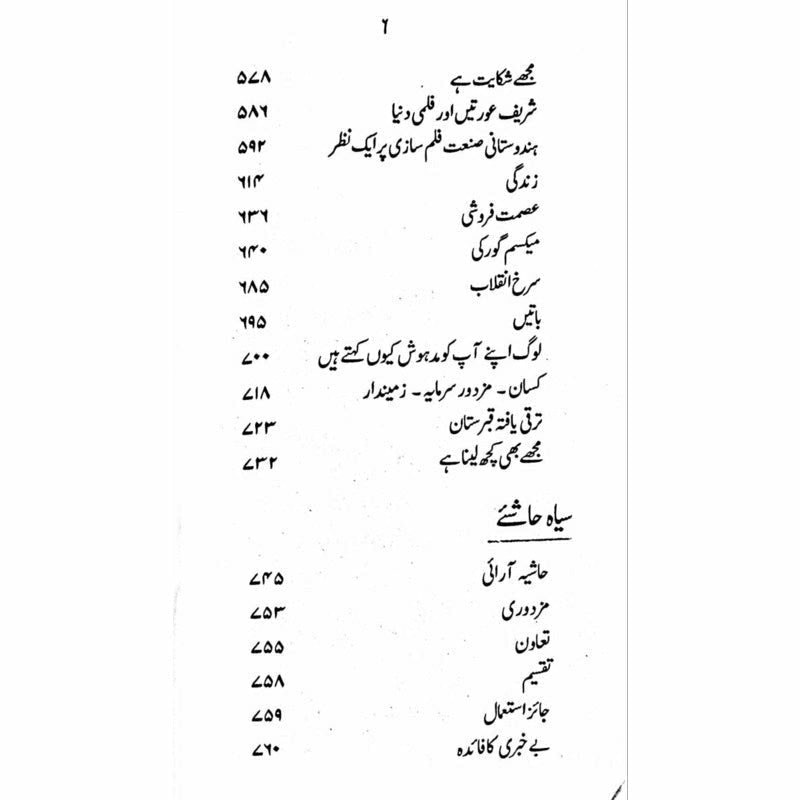 ۶
مجھے شکایت ہے ۵۷۸
شریف عورتیں اور فلمی دنیا ۵۸۶
ہندوستانی صنعت فلم سازی پر ایک نظر ۵۹۲
زندگی ۶۱۴
عصمت فروشی ۶۳۶
میکسم گورکی ۶۴۰
سرخ انقلاب ۶۸۵
باتیں ۶۹۵
لوگ اپنے آپ کو مدہوش کیوں کہتے ہیں ۷۰۰
کسان ۔ مزدور سرمایہ ۔ زمیندار ۷۱۸
ترقی یافتہ قبرستان ۷۲۳
مجھے بھی کچھ لینا ہے ۷۳۲
سیاہ حاشئے
حاشیہ آرائی ۷۴۵
مزدوری ۷۵۳
تعاون ۷۵۵
تقسیم ۷۵۸
جائز استعمال ۷۵۹
بے خبری کا فائدہ ۷۶۰